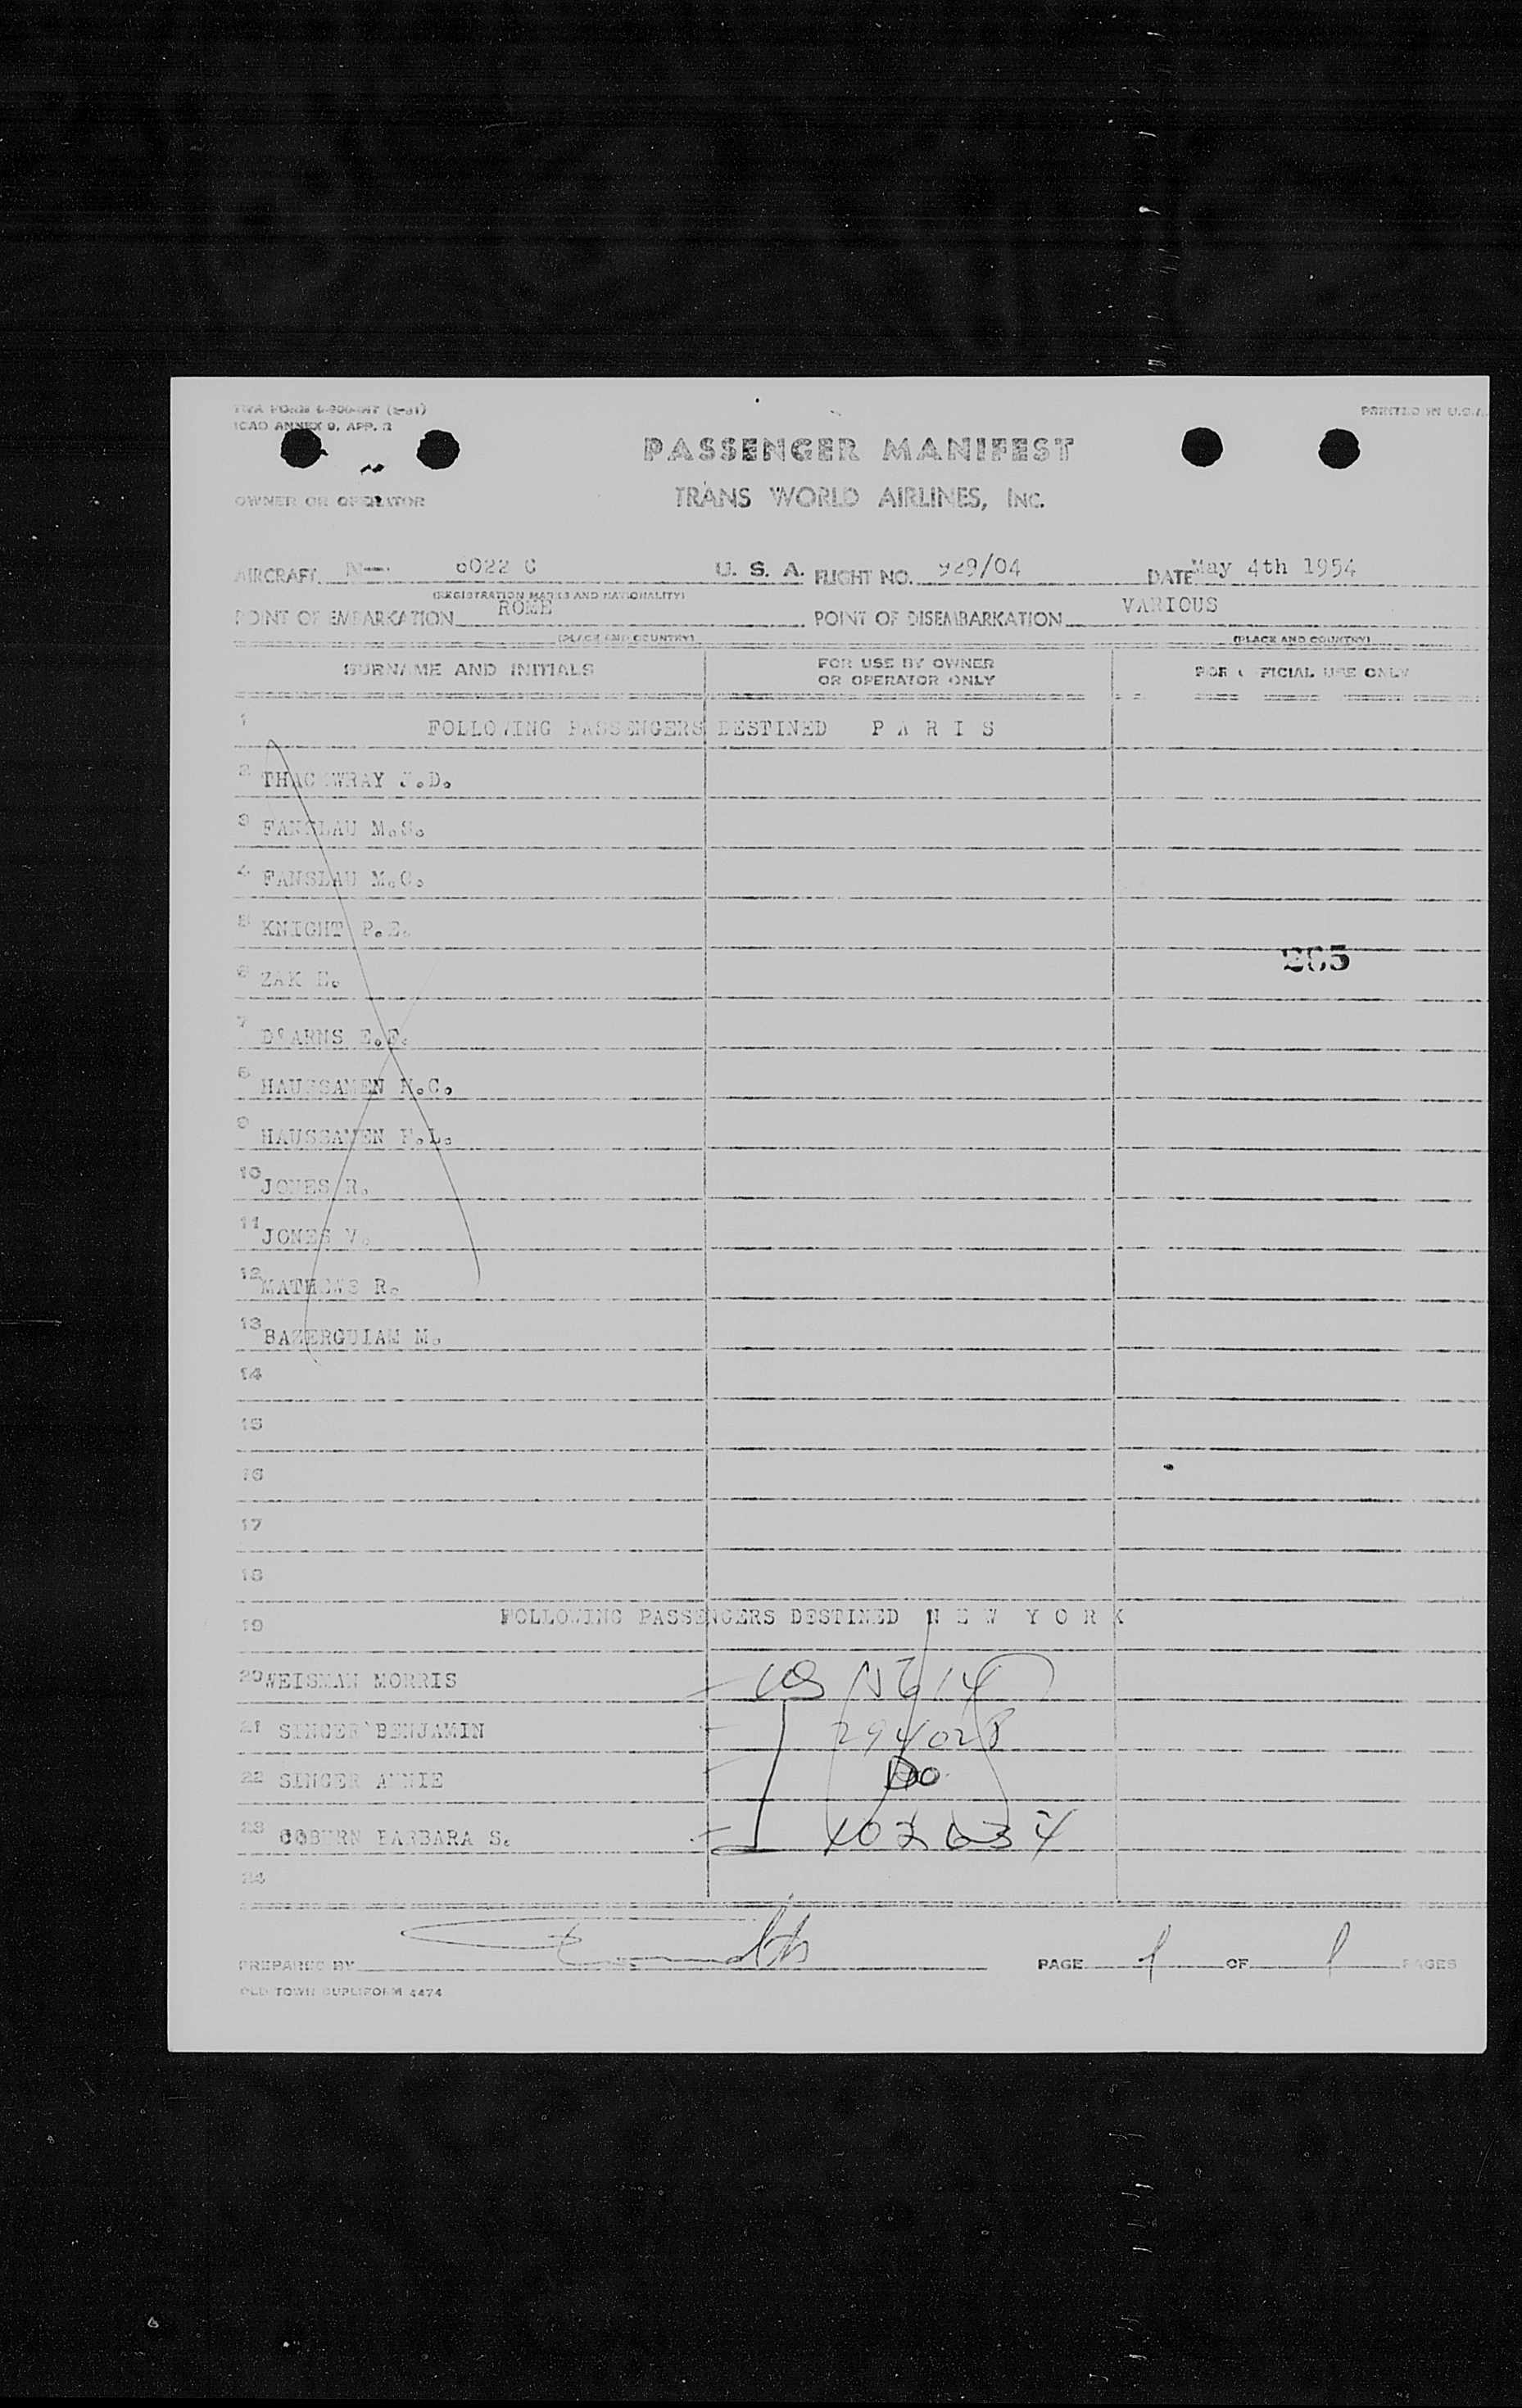 TWA FORM
ICAO ANNEX 9, APP. 2
PRINTED IN U.S.A.
PASSENGER MANIFEST
OWNER OR OPERATOR
TRANS WORLD AIRLINES, INC.
AIRCRAFT N 6022 C U. S. A. FLIGHT NO. 929/04 DATE May 4th 1954
(REGISTRATION MARKS AND NATIONALITY)
POINT OF EMBARKATION ROME POINT OF DISEMBARKATION VARIOUS
(PLACE AND COUNTRY) (PLACE AND COUNTRY)
SURNAME AND INITIALS FOR USE BY OWNER OR OPERATOR ONLY FOR OFFICIAL USE ONLY
1 FOLLOWING PASSENGERS DESTINED P A R I S
2 J.D.
3 FANSLAU M.S.
4 FANSLAU M.C.
5 KNIGHT P.E.
265
6 ZAK E.
7 D'ARNS E.F.
8 HAUSSAMEN
9 HAUSSAMEN F.L.
10 JONES R.
11 JONES V.
12 MATHEWS R.
13 BAZERGUIAN M.
14
15
16
17
18
19 FOLLOWING PASSENGERS DESTINED N E W Y O R K
20 WEISMAN MORRIS
21 SINGER BENJAMIN 294028
22 SINGER ANNIE Do
23 COBURN BARBARA S. 402634
24
PREPARED BY PAGE 1 OF 1 PAGES
OLD TOWN DUPLIFORM 4474